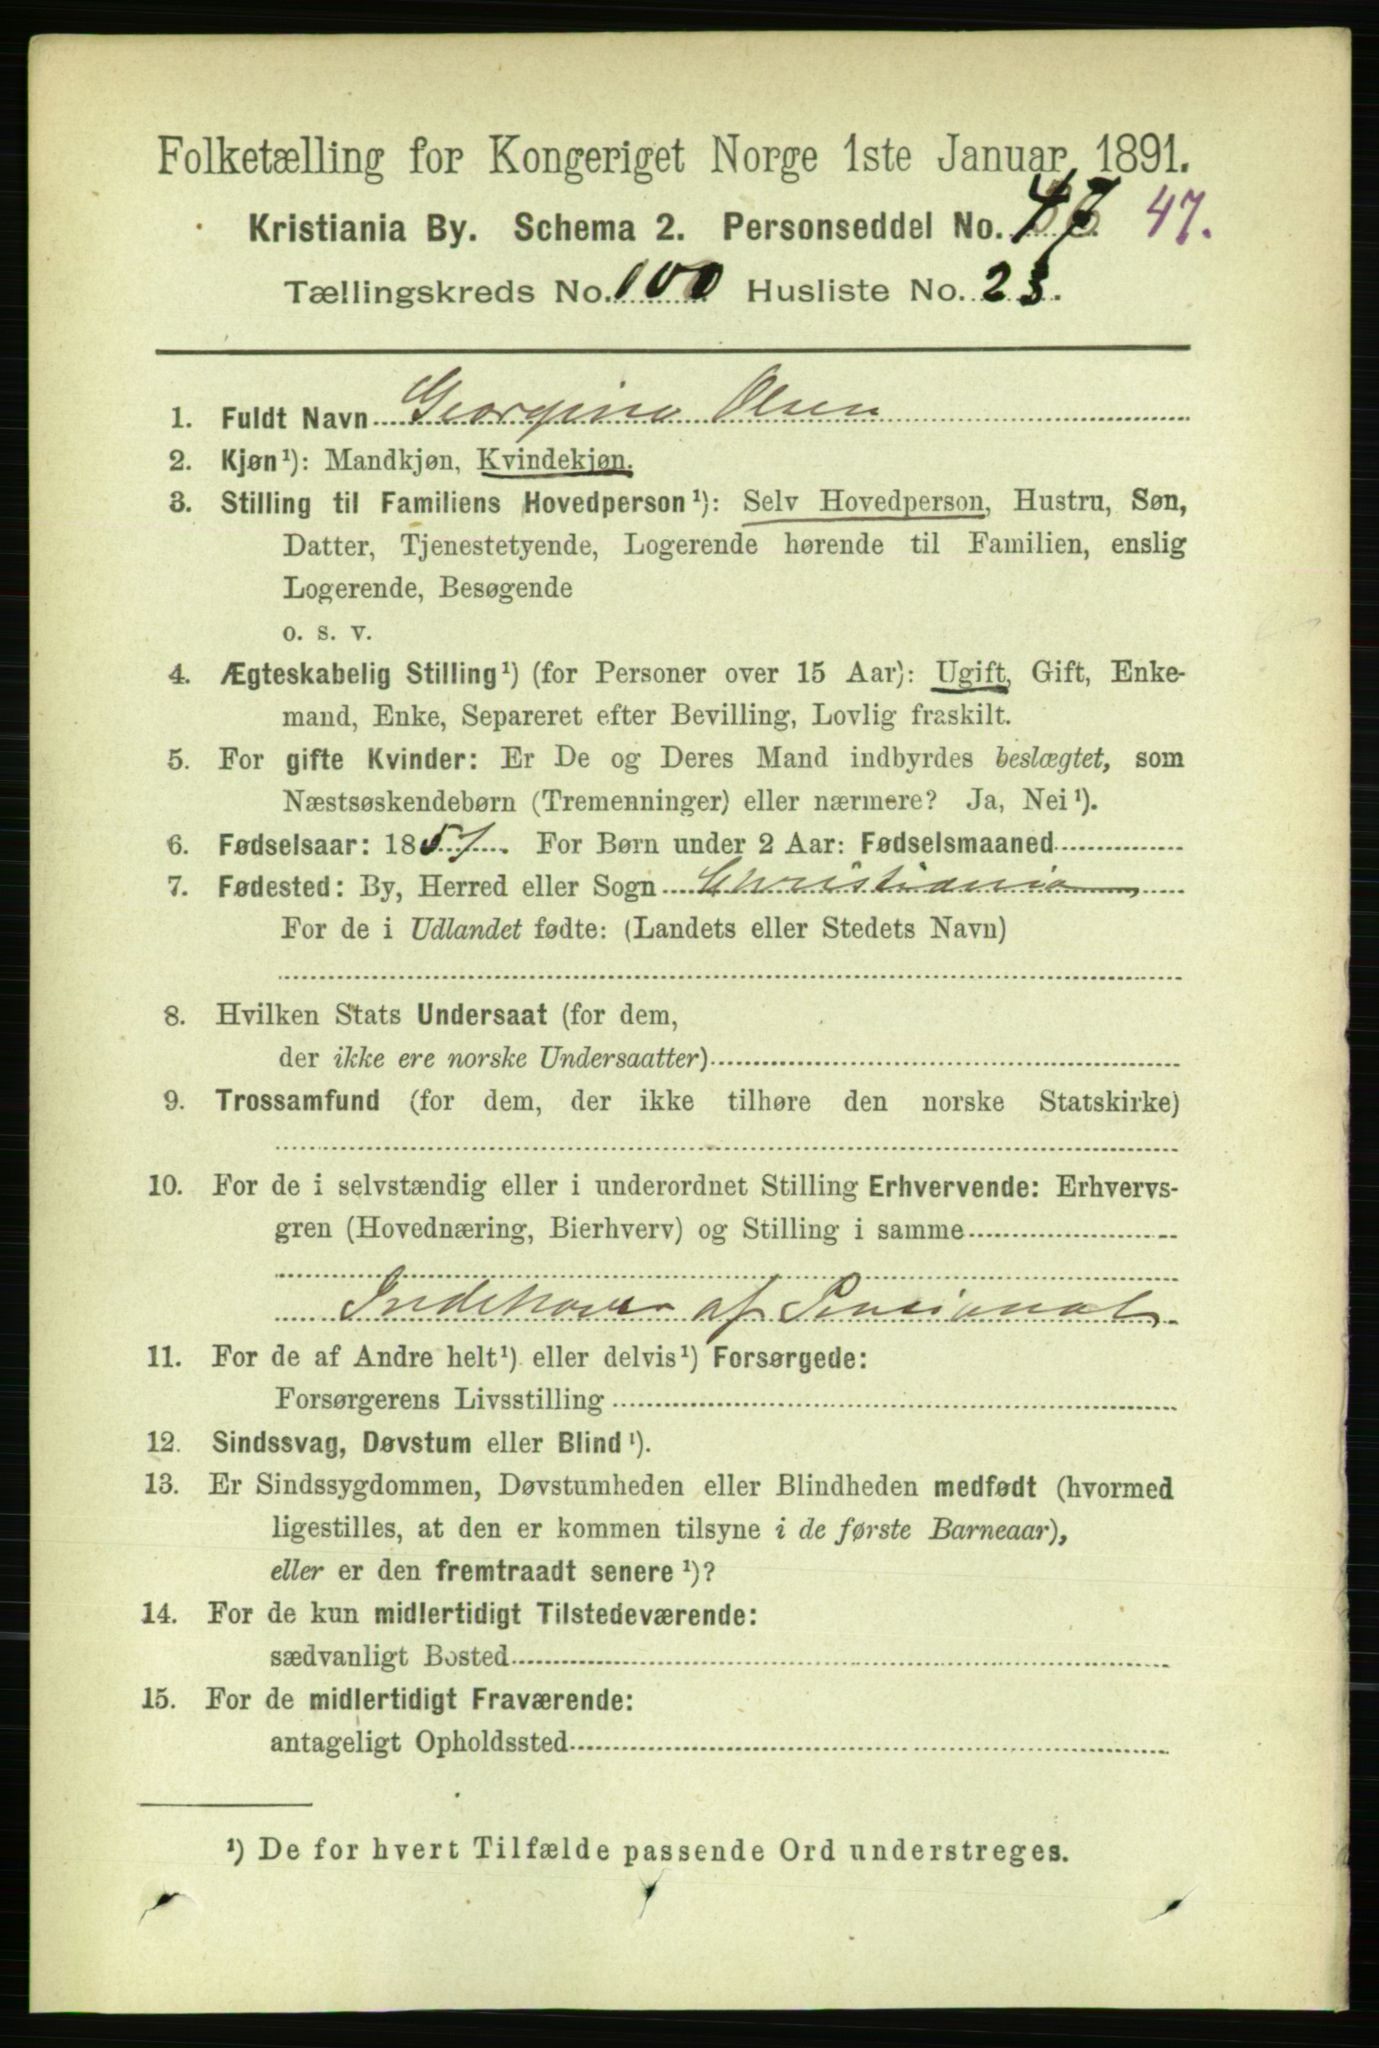 Folketælling for Kongeriget Norge 1ste Januar 1891.
Kristiania By. Schema 2. Personseddel No. 47 47.
Tællingskreds No. 100 Husliste No. 23.
1. Fuldt Navn Georgine Olsen
2. Kjøn¹): Mandkjøn, Kvindekjøn.
3. Stilling til Familiens Hovedperson¹): Selv Hovedperson, Hustru, Søn,
Datter, Tjenestetyende, Logerende hørende til Familien, enslig
Logerende, Besøgende
o. s. v.
4. Ægteskabelig Stilling¹) (for Personer over 15 Aar): Ugift, Gift, Enke-
mand, Enke, Separeret efter Bevilling, Lovlig fraskilt.
5. For gifte Kvinder: Er De og Deres Mand indbyrdes beslægtet, som
Næstsøskendebørn (Tremenninger) eller nærmere? Ja, Nei¹).
6. Fødselsaar: 1857. For Børn under 2 Aar: Fødselsmaaned
7. Fødested: By, Herred eller Sogn Christiania
For de i Udlandet fødte: (Landets eller Stedets Navn)
8. Hvilken Stats Undersaat (for dem,
der ikke ere norske Undersaatter)
9. Trossamfund (for dem, der ikke tilhøre den norske Statskirke)
10. For de i selvstændig eller i underordnet Stilling Erhvervende: Erhvervs-
gren (Hovednæring, Bierhverv) og Stilling i samme
Indehaver af Pensionat
11. For de af Andre helt¹) eller delvis¹) Forsørgede:
Forsørgerens Livsstilling
12. Sindssvag, Døvstum eller Blind¹).
13. Er Sindssygdommen, Døvstumheden eller Blindheden medfødt (hvormed
ligestilles, at den er kommen tilsyne i de første Barneaar),
eller er den fremtraadt senere¹)?
14. For de kun midlertidigt Tilstedeværende:
sædvanligt Bosted
15. For de midlertidigt Fraværende:
antageligt Opholdssted
¹) De for hvert Tilfælde passende Ord understreges.